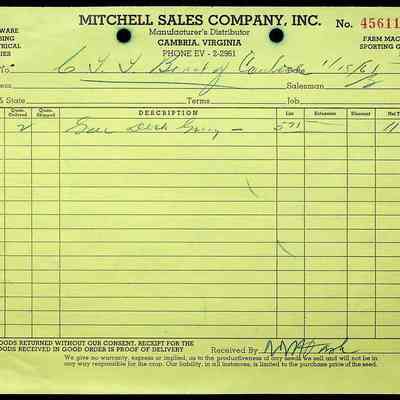 MITCHELL SALES COMPANY, INC.
No. 45611
Manufacturer's Distributor
CAMBRIA, VIRGINIA
PHONE EV - 2-2961
WARE
BING
TRICAL
IES
FARM MAC
SPORTING G
To C & T Bank of Cambria 11/15/61
ess Salesman
& State Terms Job
Quan. Ordered Quan. Shipped DESCRIPTION List Extension Discount Net T
2 Desk 571 11
OODS RETURNED WITHOUT OUR CONSENT, RECEIPT FOR THE
OODS RECEIVED IN GOOD ORDER IS PROOF OF DELIVERY
Received By
We give no warranty, express or implied, as to the productiveness of any seeds we sell and will not be in
any way responsible for the crop. Our liability, in all instances, is limited to the purchase price of the seed.